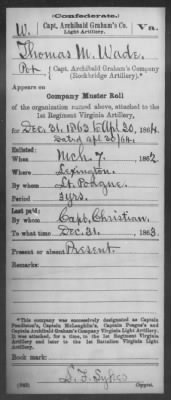 (Confederate.)
W. Capt. Archibald Graham's Co. Va.
Light Artillery.
Thomas M. Wade.
Pvt., Capt. Archibald Graham's Company
(Rockbridge Artillery).*
Appears on
Company Muster Roll
of the organization named above, attached to the
1st Regiment Virginia Artillery,
for Dec. 31, 1863 to Apl 30, 1864.
Dated Apl 30/64.
Enlisted:
When Mch. 7, 1862.
Where Lexington.
By whom Lt. Poague.
Period 3 yrs.
Last paid:
By whom Capt. Christian.
To what time Dec. 31, 1863.
Present or absent Present.
Remarks:
*This company was successively designated as Captain
Pendleton's, Captain McLaughlin's, Captain Poague's and
Captain Archibald Graham's Company Virginia Light Artillery.
It was attached, for a time, to the 1st Regiment Virginia
Artillery and later to the 1st Battalion Virginia Light
Artillery.
Book mark:
(642)
Copyist.